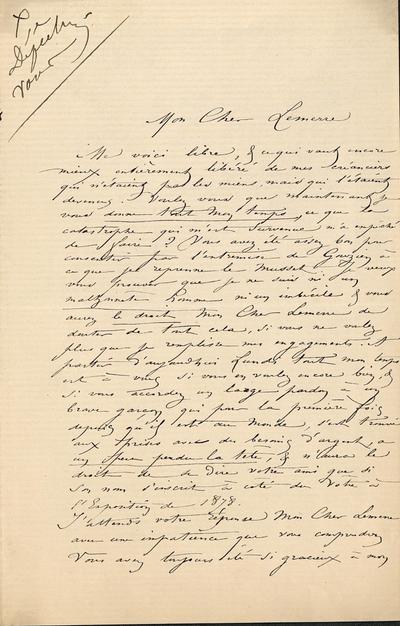 Mon Cher Lemerre
Me voici libre, & ce qui vaut encore
mieux entièrement libéré de mes créanciers
qui n'étaient pas les miens, mais qui l'étaient
devenus. Voulez vous que maintenant je
vous donne tout mon temps, ce que la
catastrophe qui m'est survenue m'a empêché
de faire? Vous avez été assez bon pour
consentir par l'entremise de
ce que je reprenne le Musset. Je veux
vous prouver que je ne suis ni un
malhonnête homme ni un imbécile & vous
aurez le droit Mon Cher Lemerre de
douter de tout cela, si vous ne voulez
plus que je remplisse mes engagements. A
partir d'aujourdhui Lundi tout mon temps
est à vous si vous en voulez encore bien, &
si vous accordez un large pardon à un
brave garçon qui pour la première fois
depuis qu'il est au monde, s'est trouvé
aux prises avec des besoins d'argent, a
un peu perdu la tête, & n'aura le
droit de se dire votre ami que si
son nom s'inscrit à coté du votre à
l'Exposition de 1878.
J'attends votre réponse Mon Cher Lemerre
avec une impatience que vous comprendrez
Vous avez toujours été si gracieux à mon